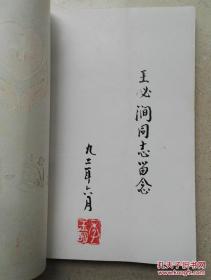 王必润同志留念
九二年六月